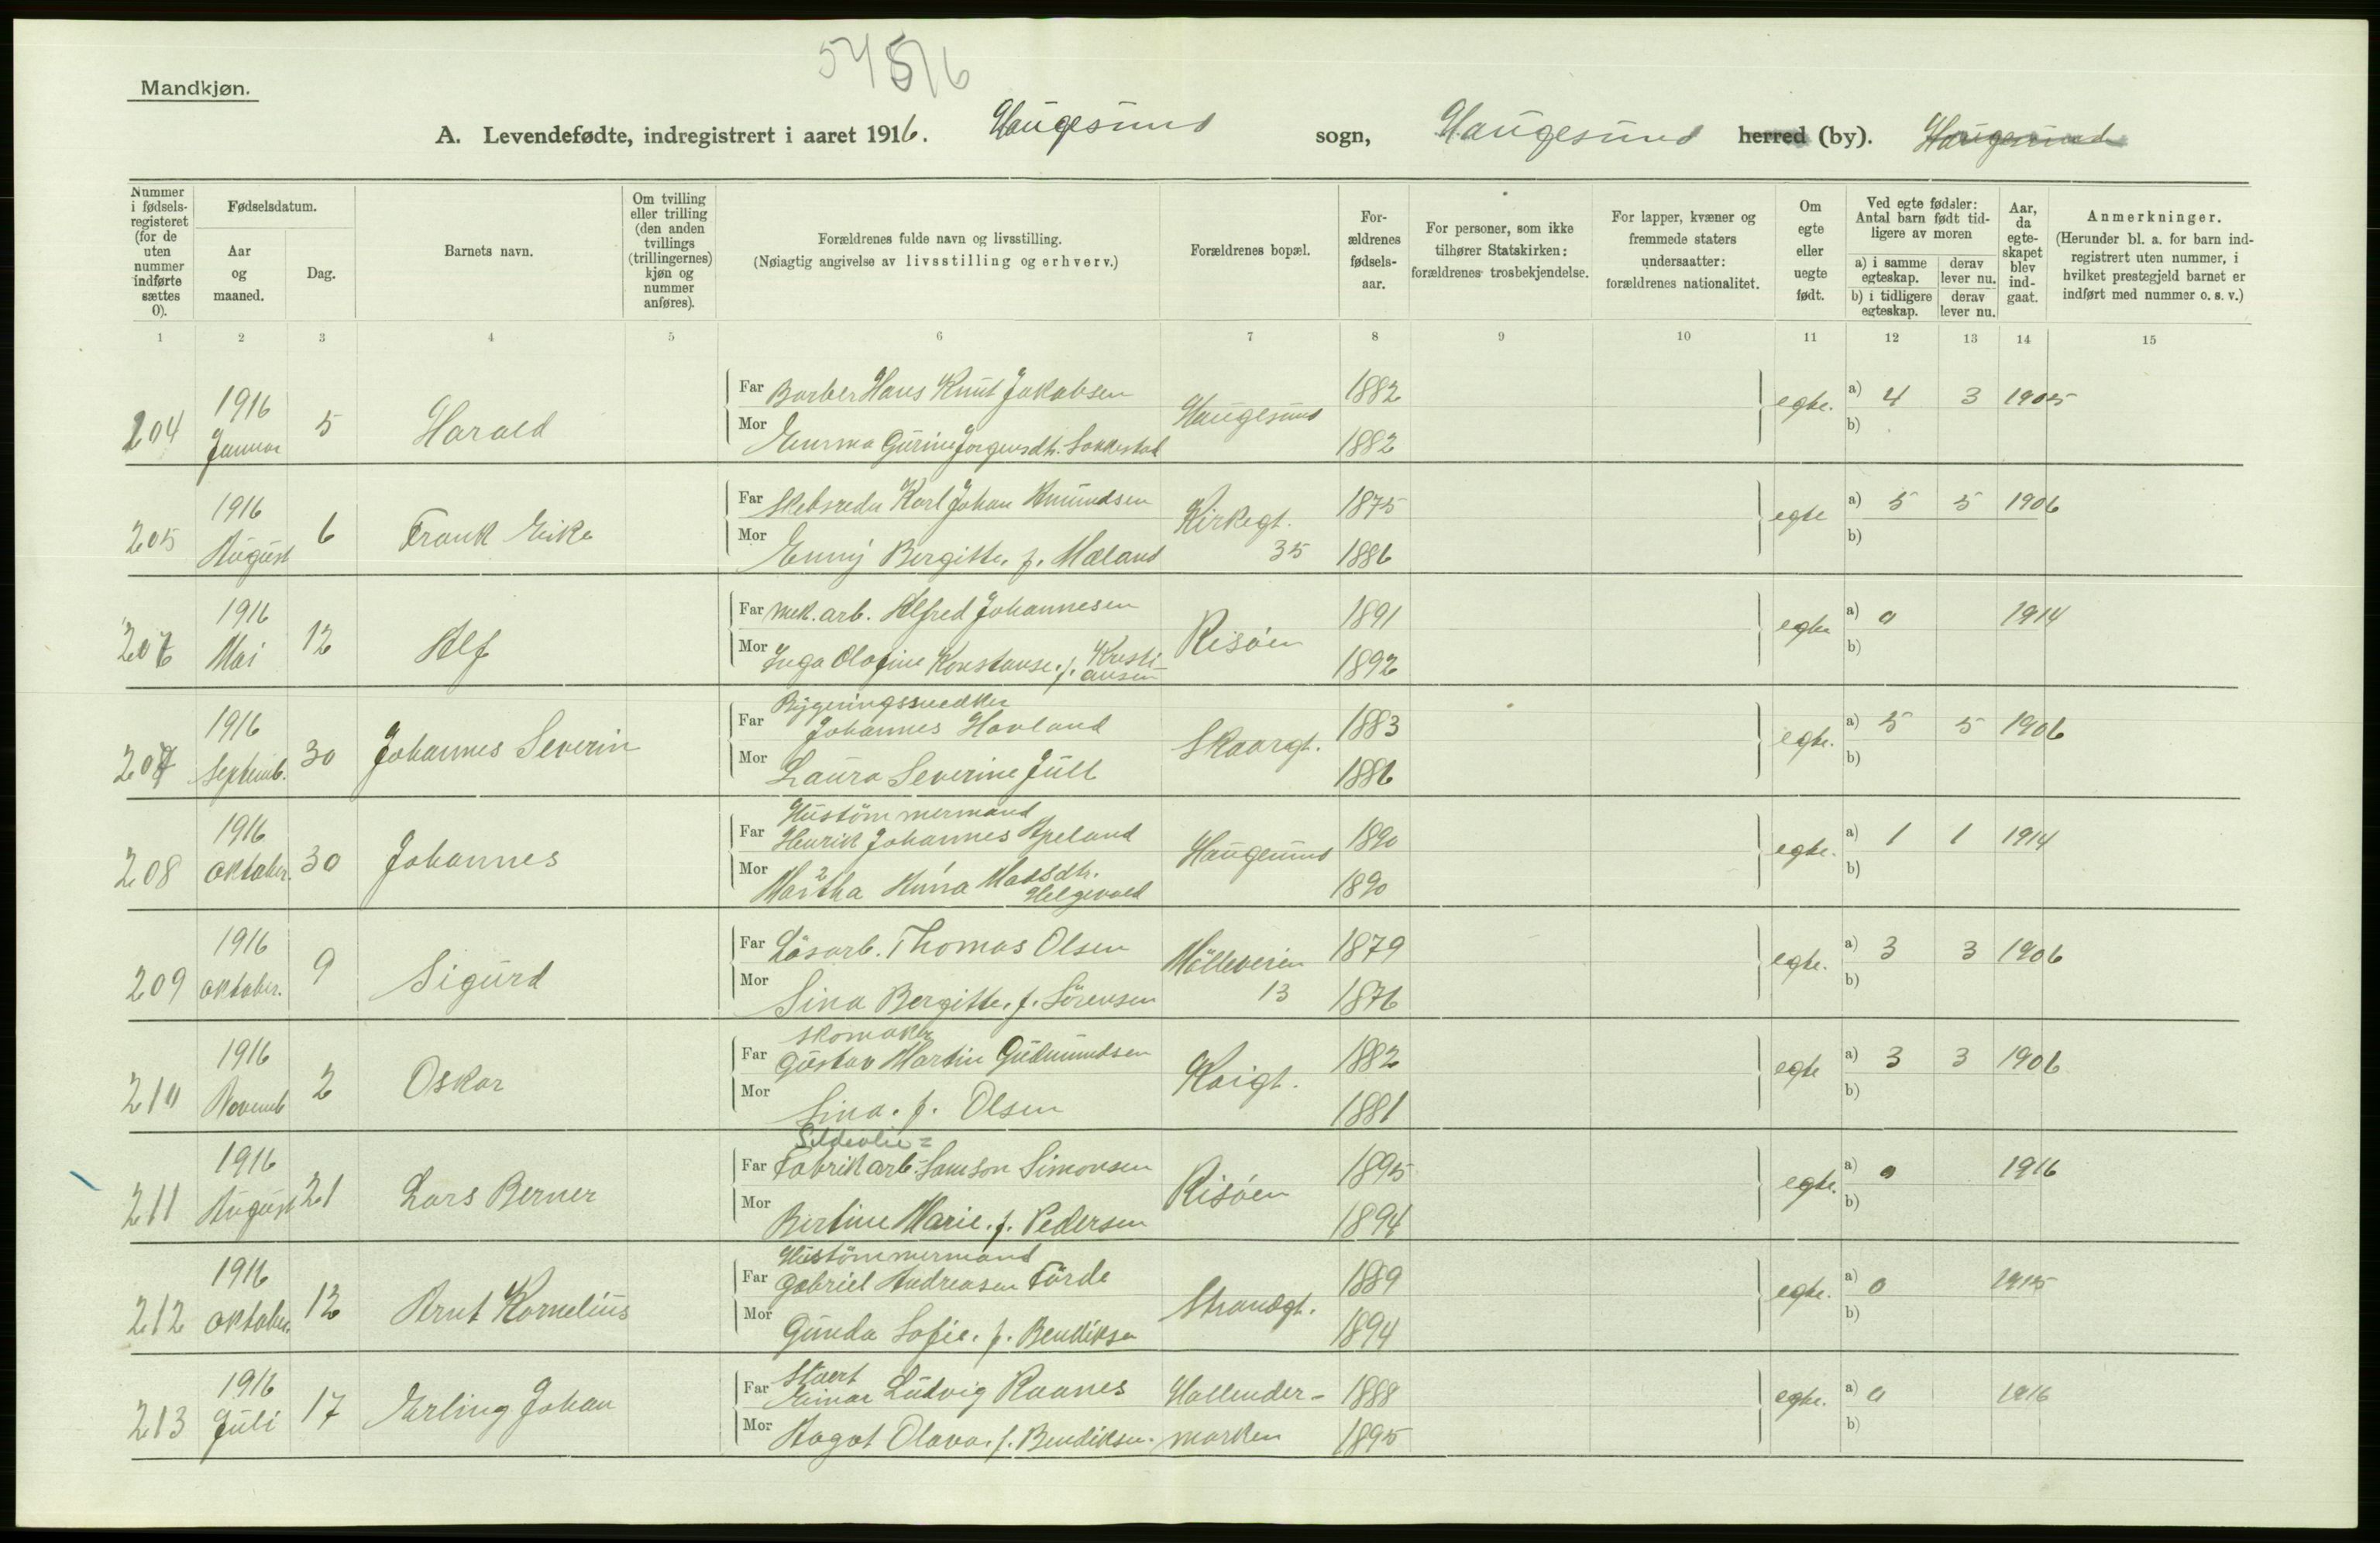 54516
Mandkjøn.
A. Levendefødte, indregistrert i aaret 1916. Haugesund sogn, Haugesund herred (by). Haugesund
Nummer i fødsels-registeret (for de uten nummer indførte sættes 0).
Fødselsdatum.
Aar og maaned.
Dag.
Barnets navn.
Om tvilling eller trilling (den anden tvillings (trillingernes) kjøn og nummer anføres).
Forældrenes fulde navn og livsstilling.
(Nøiagtig angivelse av livsstilling og erhverv.)
Forældrenes bopæl.
For-ældrenes fødsels-aar.
For personer, som ikke tilhører Statskirken: forældrenes trosbekjendelse.
For lapper, kvæner og fremmede staters undersaatter: forældrenes nationalitet.
Om egte eller uegte født.
Ved egte fødsler: Antal barn født tid-ligere av moren
a) i samme egteskap. derav lever nu.
b) i tidligere egteskap. derav lever nu.
Aar, da egte-skapet blev ind-gaat.
Anmerkninger.
(Herunder bl. a. for barn ind-registrert uten nummer, i hvilket prestegjeld barnet er indført med nummer o. s. v.)
1 2 3 4 5 6 7 8 9 10 11 12 13 14 15
204 1916 Januar 5 Harald
Far Barber Hans Knut Jakobsen Haugesund 1882 egte. a) 4 3 1905
Mor Emma Gurine Jørgensdtr. 1882 b)
205 1916 August 6 Frank Eike
Far Skibsreder Karl Johan Amundsen Kirkegt. 35 1875 egte a) 5 5 1906
Mor Enny Bergitte. f. Mæland 1886 b)
206 1916 Mai 12 Alf
Far mek. arb. Alfred Johannesen Risøen 1891 egte a) 0 1914
Mor Inga Olofine Konstanse. f. Kristiansen 1892 b)
207 1916 Septemb. 30 Johannes Severin
Bygningssnedker
Far Johannes Hovland Skaargt. 1883 egte. a) 5 5 1906
Mor Laura Severine Jull 1886 b)
208 1916 Oktober. 30 Johannes
Hustömmermand
Far Henrik Johannes Apeland Haugesund 1890 egte. a) 1 1 1914
Mor Martha Anna Madsdtr. Helgevold 1890 b)
209 1916 Oktober. 9 Sigurd
Far Løsarb. Thomas Olsen Mölleveien 13 1879 egte. a) 3 3 1906
Mor Sina Bergitte. f. Sörensen 1876 b)
210 1916 Novemb 2 Oskar
Skomaker
Far Gustav Martin Gudmundsen Kaigt. 1882 egte a) 3 3 1906
Mor Sina. f. Olsen 1881 b)
211 1916 August 21 Lars Berner
Sildeolie=
Far Fabrikarb. Samson Simonsen Risøen 1895 egte. a) 0 1916
Mor Bertine Marie. f. Pedersen 1894 b)
212 1916 Oktober. 12 Arnt Kornelius
Hustömmermand
Far Gabriel Andreasen Förde Strandgt. 1889 egte. a) 0 1915
Mor Gunda Sofie. f. Bendiksen 1894 b)
213 1916 Juli 17 Erling Johan
Stuert
Far Einar Ludvig Raanes Hollender- 1888 egte. a) 0 1916
Mor Aagot Olava. f. Bendiksen. marken 1895 b)